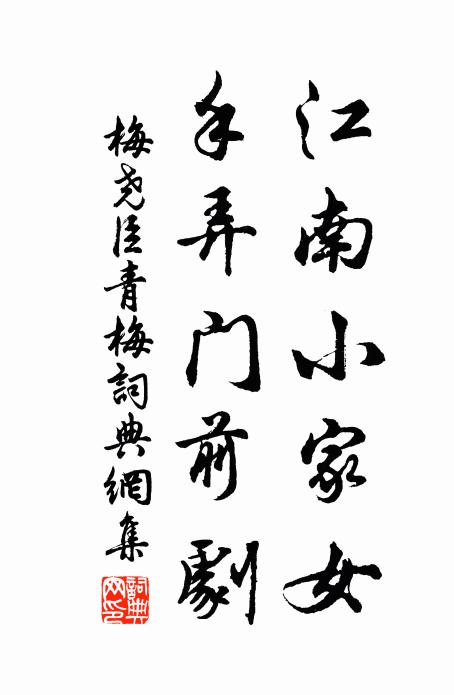 江南小家女
手弄门前劇
梅尧臣青梅詞典網集
詞典网印